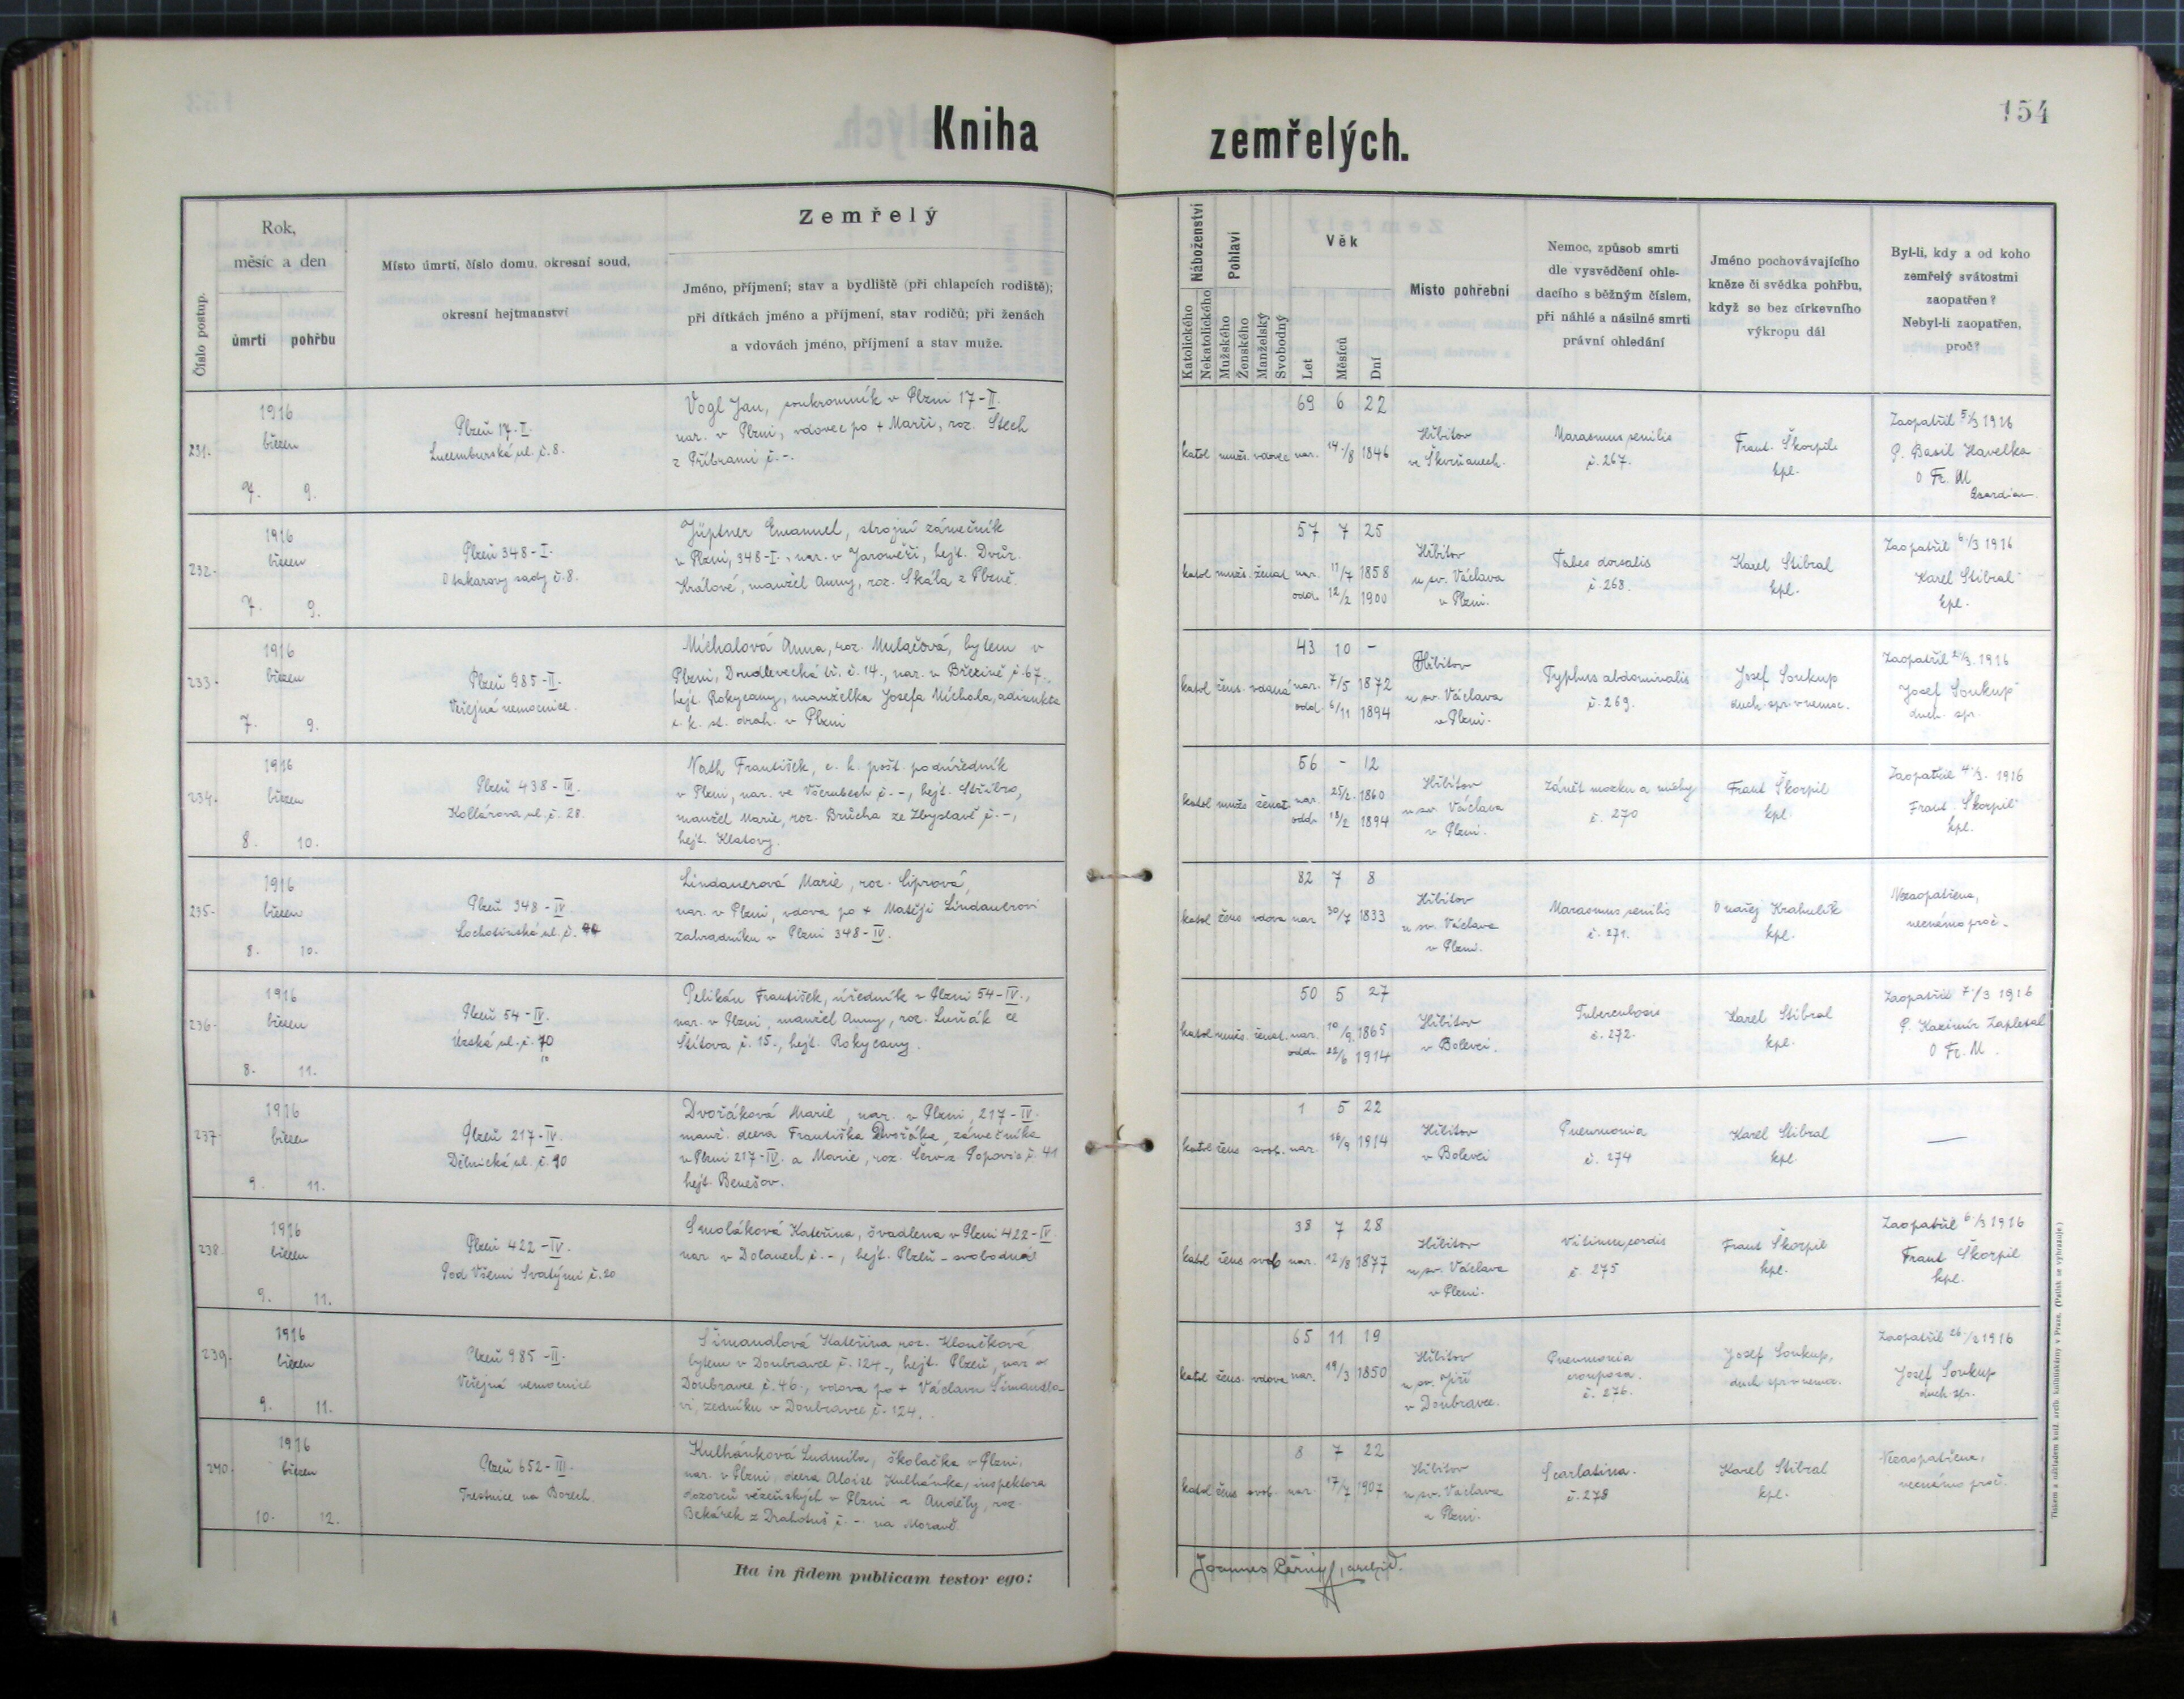 154
Kniha zemřelých.
Číslo postup.
Rok,
měsíc a den
úmrtí
pohřbu
Místo úmrtí, číslo domu, okresní soud,
okresní hejtmanství
Zemřelý
Jméno, příjmení; stav a bydliště (při chlapcích rodiště);
při dítkách jméno a příjmení, stav rodičů; při ženách
a vdovách jméno, příjmení a stav muže.
Náboženství
Katolického
Nekatolického
Pohlaví
Mužského
Ženského
Manželský
Svobodný
Věk
Let
Měsíců
Dní
Místo pohřební
Nemoc, způsob smrti
dle vysvědčení ohle-
dacího s běžným číslem,
při náhlé a násilné smrti
právní ohledání
Jméno pochovávajícího
kněze či svědka pohřbu,
když se bez církevního
výkropu dál
Byl-li, kdy a od koho
zemřelý svátostmi
zaopatřen?
Nebyl-li zaopatřen,
proč?
231.
1916
březen
7. 9.
Plzeň 17-II.
Lucemburská ul. č. 8.
Vogl Jan, soukromník v Plzni 17-II.
nar. v Plzni, vdovec po + Marii, roz. Stech
z Příbrami č. -.
katol. mužs. vdovec
69 6 22
nar. 14./8 1846
Hřbitov
ve Škvrňanech.
Marasmus senilis
č. 267.
Frant. Škorpil
kpl.
Zaopatřil 5/3 1916
P. Basil Havelka
O Fr. M
Quardian.
232.
1916
březen
7. 9.
Plzeň 348-I.
Otakarovy sady č. 8.
Jüptner Emanuel, strojní zámečník
v Plzni, 348-I., nar. v Jaroměři, hejt. Dvůr
Králové, manžel Anny, roz. Skála z Plzně.
katol mužs. ženat
57 7 25
nar. 11/7 1858
odd. 12/2 1900
Hřbitov
u sv. Václava
v Plzni.
Tabes dorsalis
č. 268.
Karel Stibral
kpl.
Zaopatřil 6./3 1916
Karel Stibral
kpl.
233.
1916
březen
7. 9.
Plzeň 985-II.
Veřejná nemocnice.
Míchalová Anna, roz. Mulačová, bytem v
Plzni, Doudlevecká tř. č. 14., nar. v Březině č. 67.,
hejt. Rokycany, manželka Josefa Míchala, adjunkta
c. k. st. drah. v Plzni
katol žens. vdaná
43 10 -
nar. 7/5 1872
odd. 6/11 1894
Hřbitov
u sv. Václava
v Plzni.
Typhus abdominalis
č. 269.
Josef Soukup
duch. spr. v nemoc.
Zaopatřil 2/3. 1916
Josef Soukup
duch. spr.
234.
1916
březen
8. 10.
Plzeň 438-III.
Kollárova ul. č. 28.
Nath František, c. k. pošt. podúředník
v Plzni, nar. ve Všerubech č. -, hejt. Stříbro,
manžel Marie, roz. Brůcha ze Zbyslavě č. -,
hejt. Klatovy.
katol mužs ženat
56 - 12
nar. 25/2. 1860
odd. 18/2 1894
Hřbitov
u sv. Václava
v Plzni.
Zánět mozku a míchy
č. 270
Frant Škorpil
kpl.
Zaopatřil 4/3. 1916
Frant. Škorpil
kpl.
235.
1916
březen
8. 10.
Plzeň 348-IV.
Lochotínská ul. č.
Lindauerová Marie, roz. Ciprová,
nar. v Plzni, vdova po + Matěji Lindauerovi
zahradníku v Plzni 348-IV.
katol žens vdova
82 7 8
nar 30/7 1833
Hřbitov
u sv. Václava
v Plzni.
Marasmus senilis
č. 271.
Onořej Krahulík
kpl.
Nezaopatřena,
neznámo proč.
236.
1916
březen
8. 11.
Plzeň 54-IV.
Úzká ul. č. 70
10
Pelikán František, úředník v Plzni 54-IV.,
nar. v Plzni, manžel Anny, roz. Luňák ze
Štítova č. 15., hejt. Rokycany.
katol mužs. ženat.
50 5 27
nar. 10/9. 1865
odd. 22/6 1914
Hřbitov
v Bolevci.
Tuberculosis
č. 272.
Karel Stibral
kpl.
Zaopatřil 7/3 1916
P. Kazimír Zapletal
O Fr. M.
237
1916
březen
9. 11.
Plzeň 217-IV.
Dělnická ul. č. 90
Dvořáková Marie, nar. v Plzni, 217-IV.
manž. dcera Františka Dvořáka, zámečníka
v Plzni 217-IV. a Marie, roz. Popovic č. 41
hejt. Benešov.
katol žens svob.
1 5 22
nar. 16/9 1914
Hřbitov
v Bolevci
Pneumonia
č. 274
Karel Stibral
kpl.
—
238.
1916
březen
9. 11.
Plzeň 422-IV.
Pod Všemi Svatými č. 20
Smoláková Kateřina, švadlena v Plzni 422-IV.
nar. v Dolanech č. -, hejt. Plzeň - svobodná
katol žens svob
38 7 28
nar. 12/8 1877
Hřbitov
u sv. Václava
v Plzni.
Vitium cordis
č. 275
Frant Škorpil
kpl.
Zaopatřil 6./3 1916
Frant Škorpil
kpl.
239.
1916
březen
9. 11.
Plzeň 985-II.
Veřejná nemocnice
Šimandlová Kateřina roz. Kloučková
bytem v Doubravce č. 124., hejt. Plzeň, nar. v
Doubravce č. 46., vdova po + Václavu Šimandlo-
vi, zedníku v Doubravce č. 124.
katol žens. vdova
65 11 19
nar. 19/3 1850
Hřbitov
u sv. Jiří
v Doubravce.
Pneumonia
crouposa.
č. 276.
Josef Soukup,
duch spr v nemoc.
Zaopatřil 26/2 1916
Josef Soukup
duch. spr.
240.
1916
březen
10. 12.
Plzeň 652-III.
Trestnice na Borech.
Kulhánková Ludmila, školačka v Plzni,
nar. v Plzni, dcera Aloise Kulhánka, inspektora
dozorců vězeňských v Plzni a Anděly, roz.
Bekárek z Drahotuš č. -. na Moravě.
katol žens svob.
8 7 22
nar. 17/7 1907
Hřbitov
u sv. Václava
v Plzni.
Scarlatina.
č. 278
Karel Stibral
kpl.
Nezaopatřena,
neznámo proč.
Ita in fidem publicam testor ego:
Joannes Černý, archid.